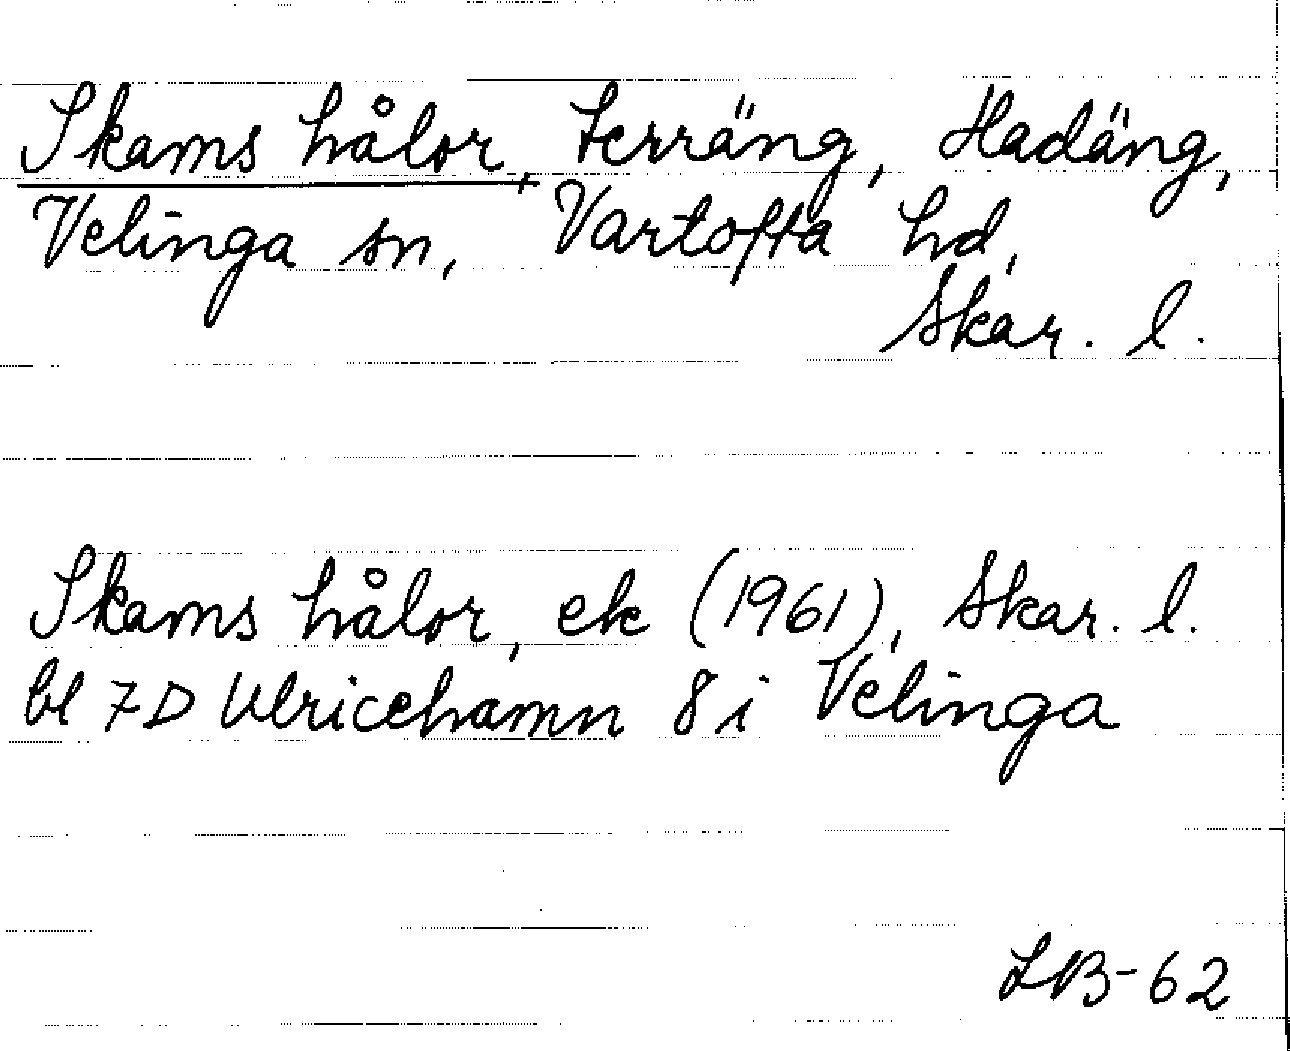 Skams hålor, terräng, Hadäng,
Velinga sn, Vartofta hd,
Skar. l.
Skams hålor, ek (1961), Skar. l.
bl 7D Ulricehamn 8 i Velinga
LB-62